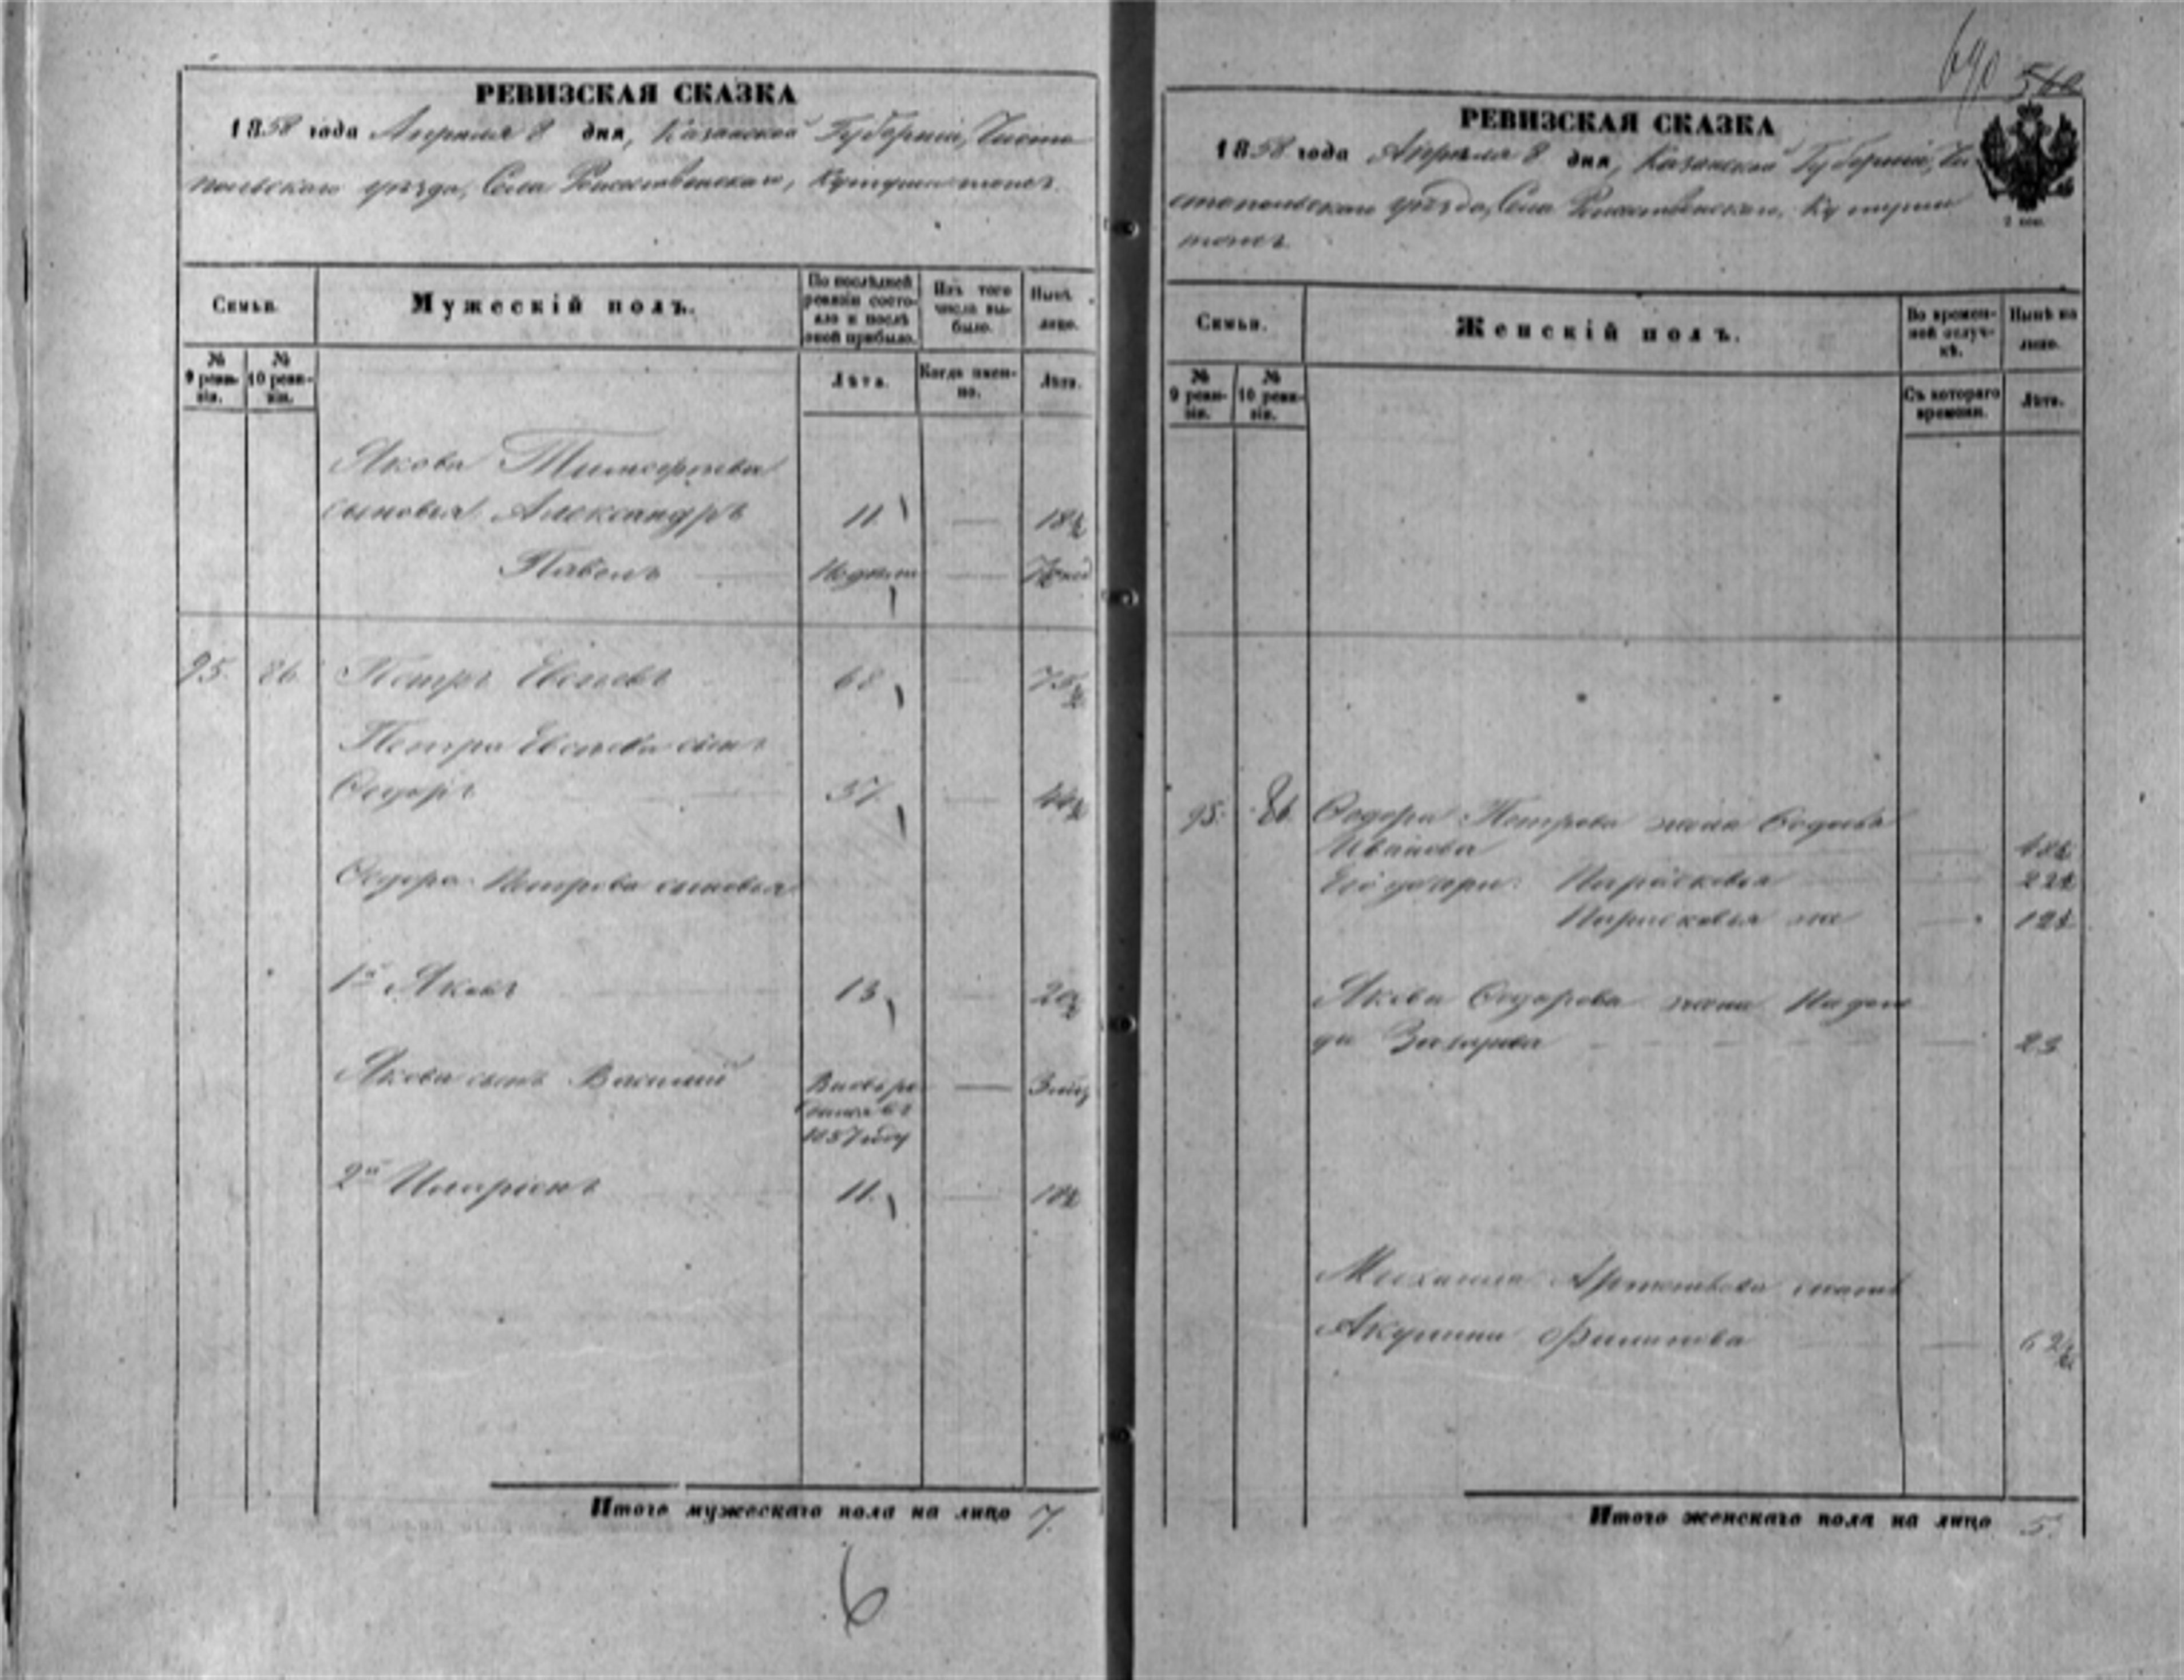 РЕВИЗСКАЯ СКАЗКА
1858 года Апреля 8 дня, Казанской Губерніи, Чисто
польскаго уезда, Села Рождественскаго, Кутуши тожъ.
Семьи.
Мужескій полъ.
По послѣдней ревизіи состояло и послѣ оной прибыло.
Изъ того числа выбыло.
Нынѣ лицо.
№ 9 ревизіи.
№ 10 ревизіи.
Лѣта.
Когда именно.
Лѣта.
Якова
сыновья Александръ 11 — 18½
Павелъ — Недели —
95. 86. Петръ Евсеевъ 68 75½
Петра Евсеева сынъ
Ѳедоръ 37 — 44½
Ѳедора Петрова сыновья
1й Яковъ 13 20½
Якова сынъ Василий Вновь ро — 
1857 году
2й Иларіонъ 11. — 18½
Итого мужескаго пола на лицо 7.
6
690 560
РЕВИЗСКАЯ СКАЗКА
1858 года Апреля 8 дня, Казанской Губерніи, Чи
стопольскаго уезда, Села Рождественскаго, Кутуши
тожъ.
2 коп.
Семьи.
Женскій полъ.
Во временной отлучкѣ.
Нынѣ на лицо.
№ 9 ревизіи.
№ 10 ревизіи.
Съ котораго времени.
Лѣта.
95. 86. Ѳедора Петрова жена
Иванова
Его дочери: Парасковья 22½
Парасковья же 12½
Якова Ѳедорова жена Надеж
да Захарова 23
Михаила мать
Акулина Филипова — 62½
Итого женскаго пола на лицо 5.